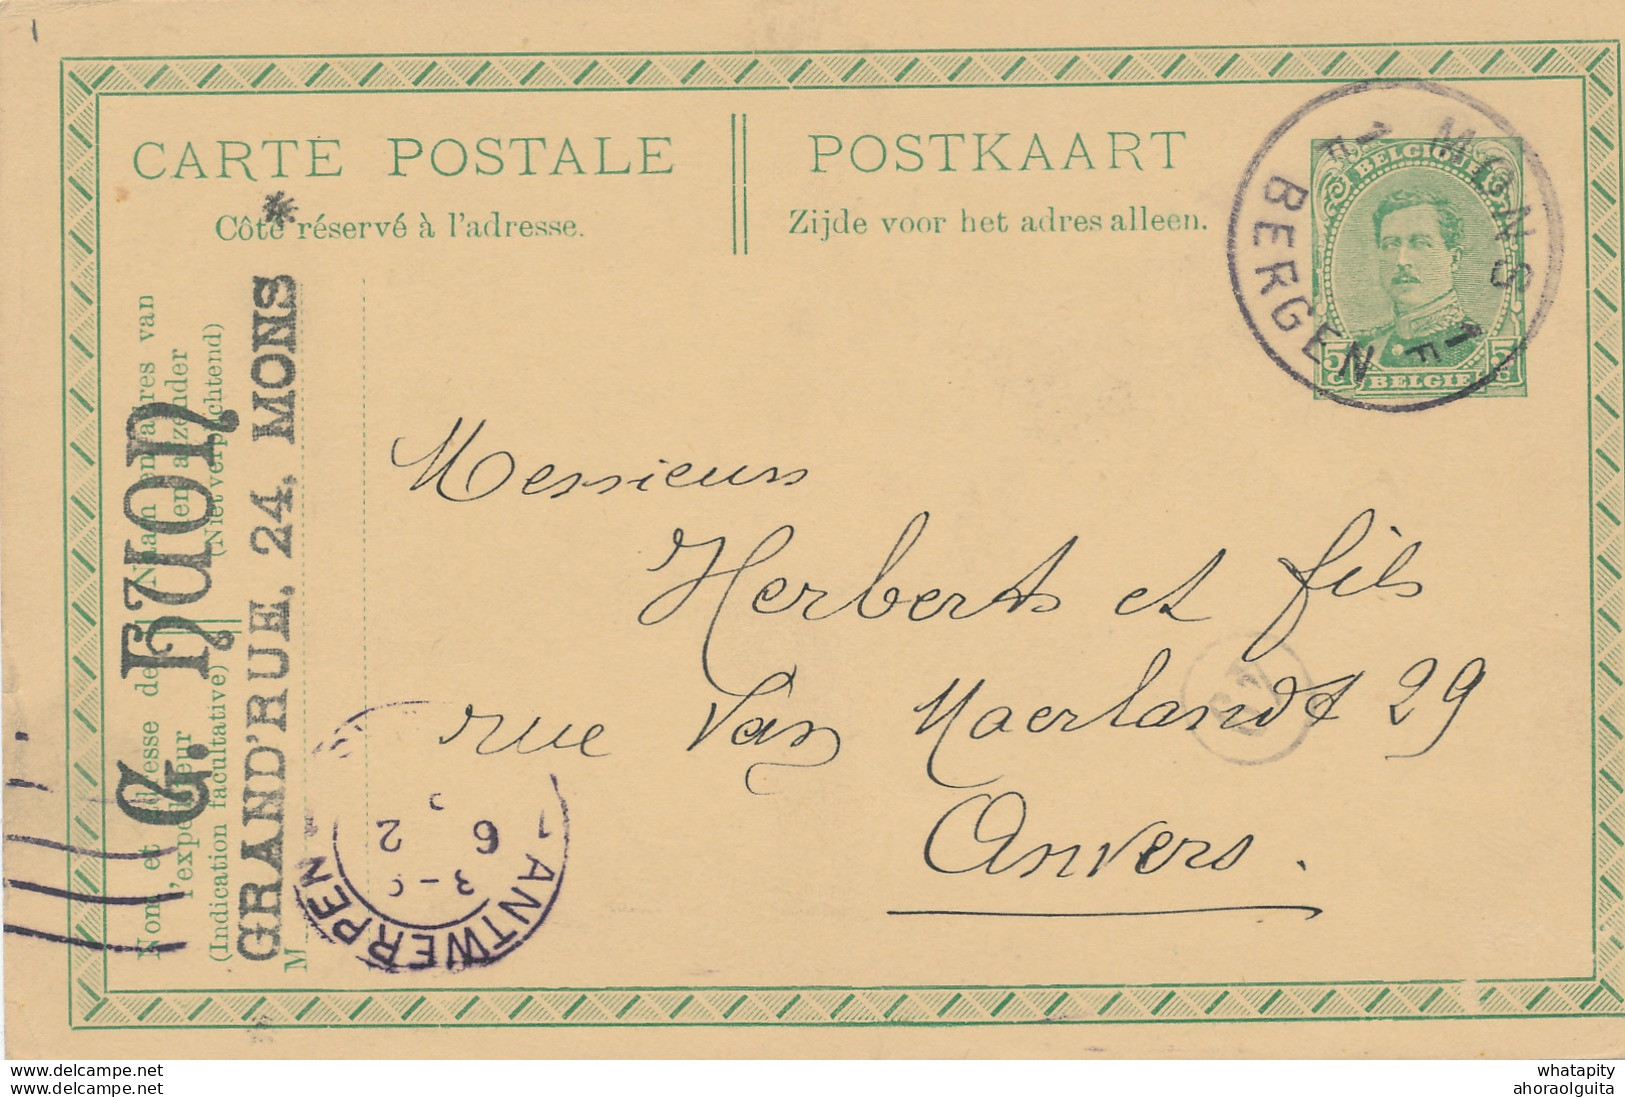 CARTE POSTALE
Côté réservé à l'adresse.
POSTKAART
Zijde voor het adres alleen.
MONS
1F
BERGEN
1F
BELGIQUE
5 C
5 C
BELGIË
Naam en adres van
den afzender
(Niet verplichtend)
Nom et adresse de
l'expéditeur
(Indication facultative)
G. HUON
GRAND'RUE, 24, MONS
M
Messieurs
Herberts et fils
rue Van Maerlandt 29
Anvers.
ANTWERPEN
6
2
whatapity
ahoraolguita